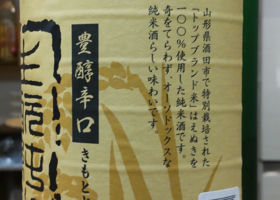 山形県酒田市で特別栽培された
「トップブランド米」はえぬきを
一〇〇%使用した純米酒です。
奇をてらわず、オーソドックスな
純米酒らしい味わいです。
豊醇辛口
きもと